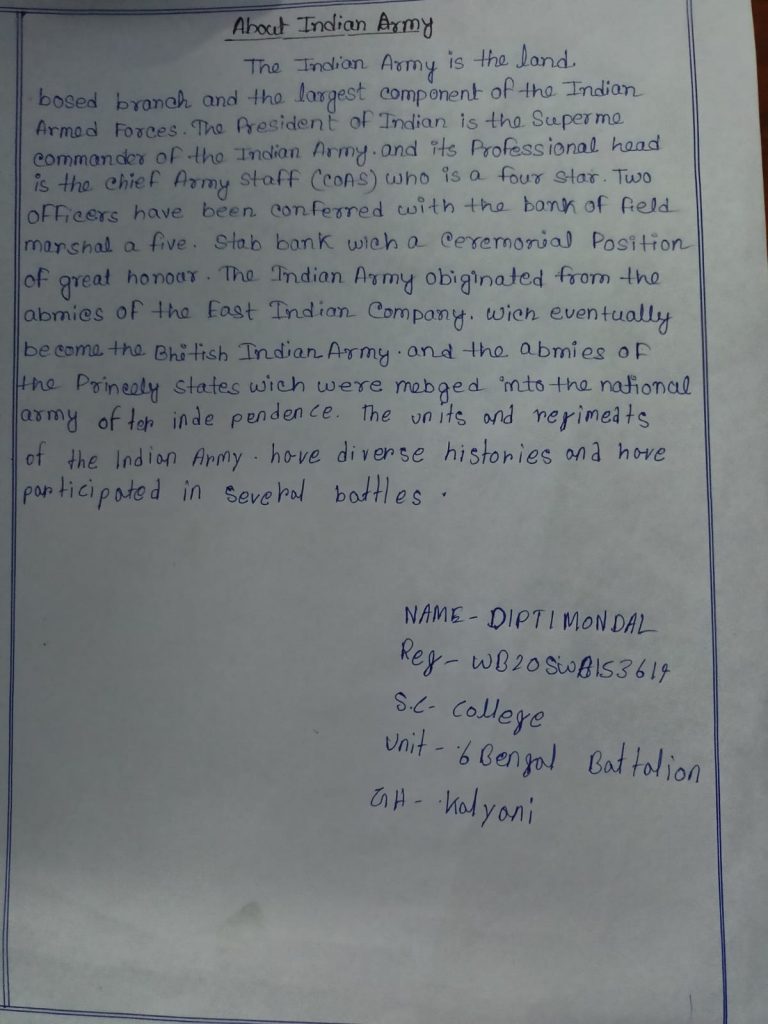 About Indian Army
The Indian Army is the land
bosed branch and the largest component of the Indian
Armed Forces. The President of Indian is the Superme
commander of the Indian Army. and its Professional head
is the chief Army Staff (COAS) who is a four star. Two
officers have been conferred with the bank of field
marshal a five. Stab bank wich a Ceremonial Position
of great honour. The Indian Army obiginated from the
abmies of the East Indian Company. wich eventually
become the Bhitish Indian Army. and the abmies of
the Princely states wich were mebged into the national
army often inde pendence. The units and regiments
of the Indian Army. have diverse histories and have
participated in several battles.
NAME - DIPTI MONDAL
Reg - WB20SWB153619
S.C. College
Unit - 6 Bengal Battalion
GH - Kalyani